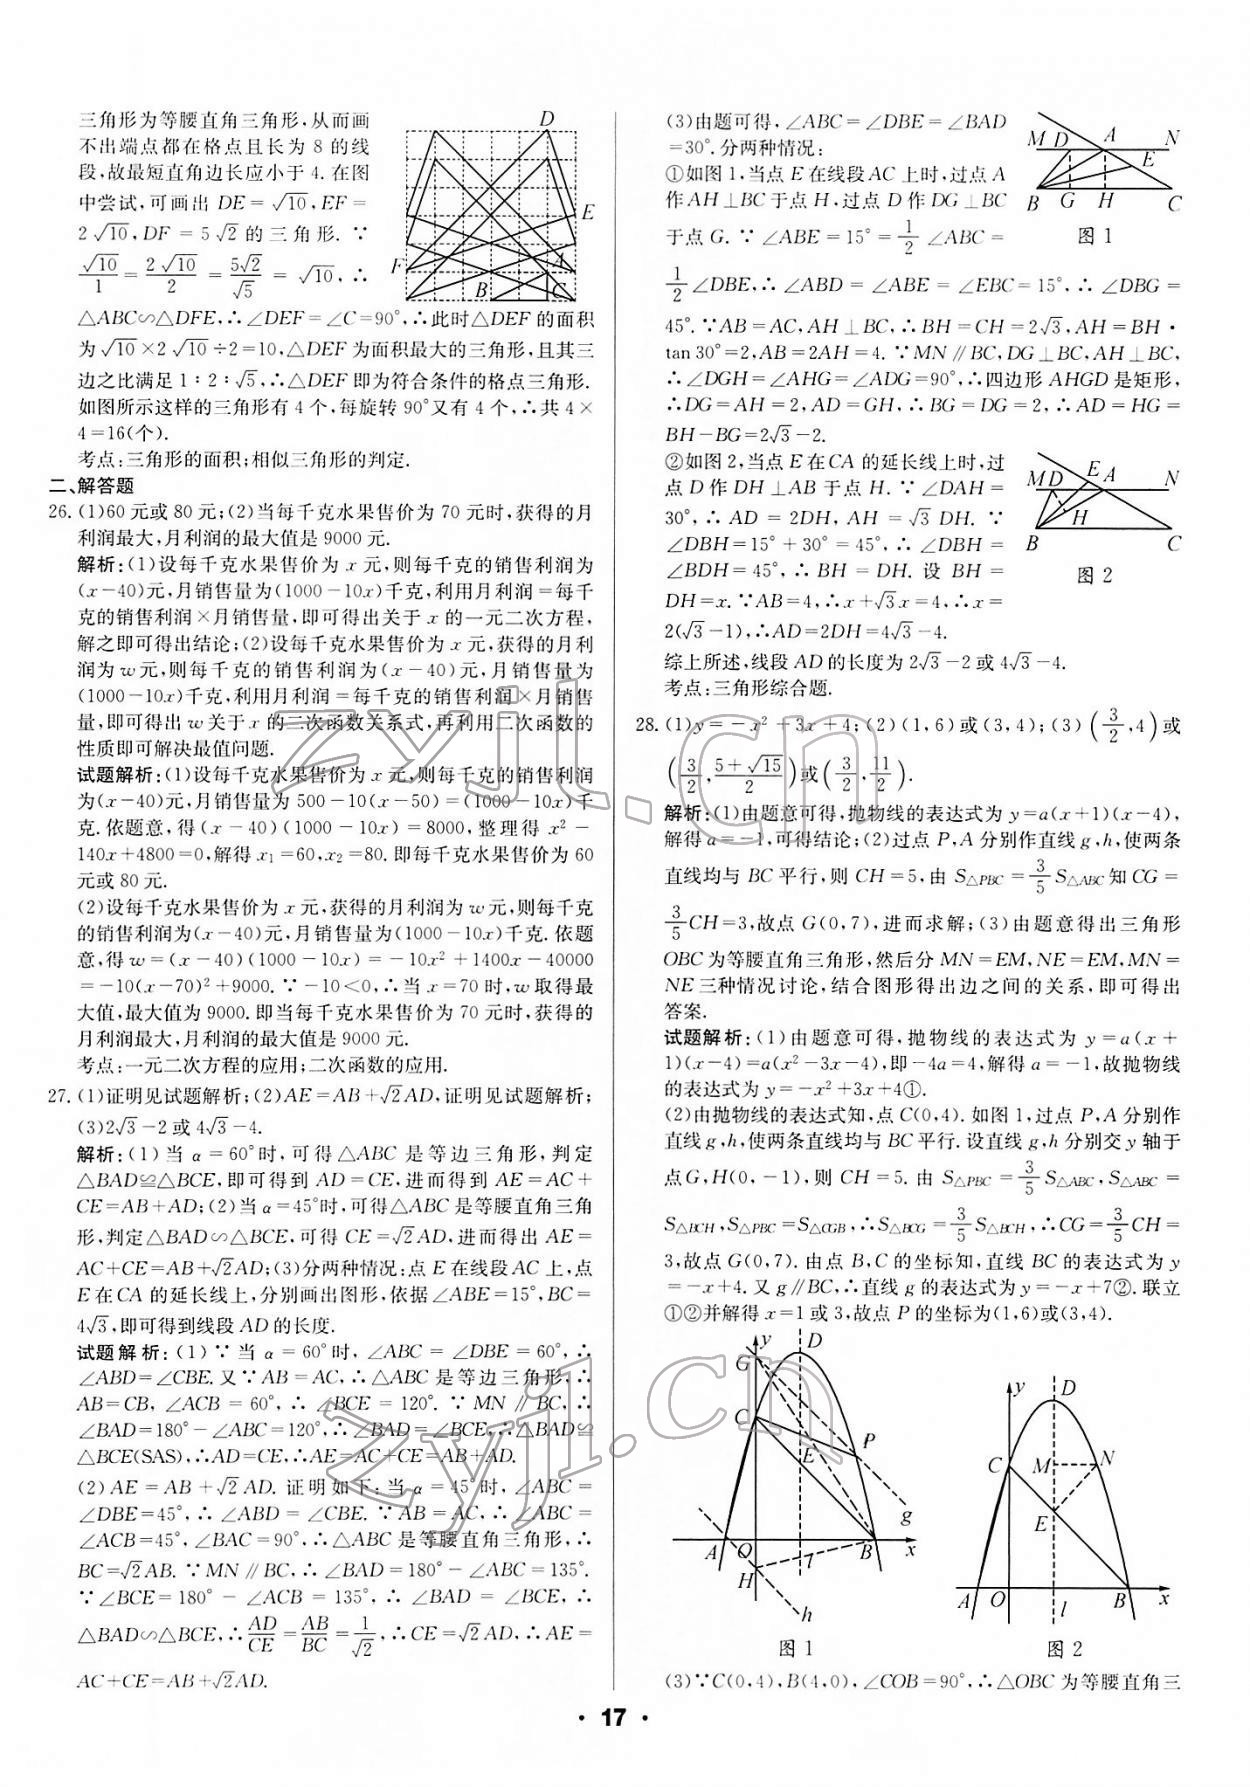 三角形为等腰直角三角形,从而画
不出端点都在格点且长为 8 的线
段,故最短直角边长应小于 4. 在图
中尝试,可画出 DE=√10,EF=
2√10,DF=5√2的三角形. ∵
√10/1=2√10/2=5√2/√5=√10,∴
△ABC∽△DFE,∴∠DEF=∠C=90°,∴此时△DEF 的面积
为√10×2√10÷2=10,△DEF 为面积最大的三角形,且其三
边之比满足 1∶2∶√5,∴△DEF 即为符合条件的格点三角形.
如图所示这样的三角形有 4 个,每旋转 90°又有 4 个,∴共 4×
4=16(个).
考点:三角形的面积;相似三角形的判定.
D
E
F
A
B
C
二、解答题
26. (1)60 元或 80 元;(2)当每千克水果售价为 70 元时,获得的月
利润最大,月利润的最大值是 9000 元.
解析:(1)设每千克水果售价为 x 元,则每千克的销售利润为
(x-40)元,月销售量为(1000-10x)千克,利用月利润=每千
克的销售利润×月销售量,即可得出关于 x 的一元二次方程,
解之即可得出结论;(2)设每千克水果售价为 x 元,获得的月利
润为 w 元,则每千克的销售利润为(x-40)元,月销售量为
(1000-10x)千克,利用月利润=每千克的销售利润×月销售
量,即可得出 w 关于 x 的二次函数关系式,再利用二次函数的
性质即可解决最值问题.
试题解析:(1)设每千克水果售价为 x 元,则每千克的销售利润
为(x-40)元,月销售量为 500-10(x-50)=(1000-10x)千
克. 依题意,得(x-40)(1000-10x)=8000,整理得 x²-
140x+4800=0,解得 x₁=60,x₂=80. 即每千克水果售价为 60
元或 80 元.
(2)设每千克水果售价为 x 元,获得的月利润为 w 元,则每千克
的销售利润为(x-40)元,月销售量为(1000-10x)千克. 依题
意,得 w=(x-40)(1000-10x)=-10x²+1400x-40000
=-10(x-70)²+9000. ∵-10<0,∴当 x=70 时,w 取得最
大值,最大值为 9000. 即当每千克水果售价为 70 元时,获得的
月利润最大,月利润的最大值是 9000 元.
考点:一元二次方程的应用;二次函数的应用.
27. (1)证明见试题解析;(2)AE=AB+√2AD,证明见试题解析;
(3)2√3-2 或 4√3-4.
解析:(1)当 α=60°时,可得△ABC 是等边三角形,判定
△BAD≌△BCE,即可得到 AD=CE,进而得到 AE=AC+
CE=AB+AD;(2)当 α=45°时,可得△ABC 是等腰直角三角
形,判定△BAD∽△BCE,可得 CE=√2AD,进而得出 AE=
AC+CE=AB+√2AD;(3)分两种情况:点 E 在线段 AC 上,点
E 在 CA 的延长线上,分别画出图形,依据∠ABE=15°,BC=
4√3,即可得到线段 AD 的长度.
试题解析:(1)∵当 α=60°时,∠ABC=∠DBE=60°,∴
∠ABD=∠CBE. 又∵AB=AC,∴△ABC 是等边三角形,∴
AB=CB,∠ACB=60°,∴∠BCE=120°. ∵MN∥BC,∴
∠BAD=180°-∠ABC=120°,∴∠BAD=∠BCE,∴△BAD≌
△BCE(SAS),∴AD=CE,∴AE=AC+CE=AB+AD.
(2)AE=AB+√2AD. 证明如下:当 α=45°时,∠ABC=
∠DBE=45°,∴∠ABD=∠CBE. ∵AB=AC,∴∠ABC=
∠ACB=45°,∠BAC=90°,∴△ABC 是等腰直角三角形,∴
BC=√2AB. ∵MN∥BC,∴∠BAD=180°-∠ABC=135°.
∵∠BCE=180°-∠ACB=135°,∴∠BAD=∠BCE,∴
△BAD∽△BCE,∴AD/CE=AB/BC=1/√2,∴CE=√2AD,∴AE=
AC+CE=AB+√2AD.
(3)由题可得,∠ABC=∠DBE=∠BAD
=30°. 分两种情况:
①如图 1,当点 E 在线段 AC 上时,过点 A
作 AH⊥BC 于点 H,过点 D 作 DG⊥BC
于点 G. ∵∠ABE=15°=1/2∠ABC=
1/2∠DBE,∴∠ABD=∠ABE=∠EBC=15°,∴∠DBG=
45°. ∵AB=AC,AH⊥BC,∴BH=CH=2√3,AH=BH·
tan 30°=2,AB=2AH=4. ∵MN∥BC,DG⊥BC,AH⊥BC,
∴∠DGH=∠AHG=∠ADG=90°,∴四边形 AHGD 是矩形,
∴DG=AH=2,AD=GH,∴BG=DG=2,∴AD=HG=
BH-BG=2√3-2.
M D A N
E
B G H C
图 1
②如图 2,当点 E 在 CA 的延长线上时,过
点 D 作 DH⊥AB 于点 H. ∵∠DAH=
30°,∴AD=2DH,AH=√3DH. ∵
∠DBH=15°+30°=45°,∴∠DBH=
∠BDH=45°,∴BH=DH. 设 BH=
DH=x. ∵AB=4,∴x+√3x=4,∴x=
2(√3-1),∴AD=2DH=4√3-4.
综上所述,线段 AD 的长度为 2√3-2 或 4√3-4.
考点:三角形综合题.
MD E A N
H
B C
图 2
28. (1)y=-x²+3x+4;(2)(1,6)或(3,4);(3)(3/2,4)或
(3/2,5+√15/2)或(3/2,11/2).
解析:(1)由题意可得,抛物线的表达式为 y=a(x+1)(x-4),
解得 a=-1,可得结论;(2)过点 P,A 分别作直线 g,h,使两条
直线均与 BC 平行,则 CH=5,由 S△PBC=3/5S△ABC知 CG=
3/5CH=3,故点 G(0,7),进而求解;(3)由题意得出三角形
OBC 为等腰直角三角形,然后分 MN=EM,NE=EM,MN=
NE 三种情况讨论,结合图形得出边之间的关系,即可得出
答案.
试题解析:(1)由题意可得,抛物线的表达式为 y=a(x+
1)(x-4)=a(x²-3x-4),即-4a=4,解得 a=-1,故抛物线
的表达式为 y=-x²+3x+4①.
(2)由抛物线的表达式知,点 C(0,4). 如图 1,过点 P,A 分别作
直线 g,h,使两条直线均与 BC 平行. 设直线 g,h 分别交 y 轴于
点G,H(0,-1),则 CH=5. 由 S△PBC=3/5S△ABC,S△ABC=
S△BCH,S△PBC=S△CGB,∴S△BCG=3/5S△BCH,∴CG=3/5CH=
3,故点 G(0,7). 由点 B,C 的坐标知,直线 BC 的表达式为 y
=-x+4. 又 g∥BC,∴直线 g 的表达式为 y=-x+7②. 联立
①②并解得 x=1 或 3,故点 P 的坐标为(1,6)或(3,4).
y D
G
C
P
E
g
A O l B x
H
h
图 1
y D
C M N
E
A O l B x
图 2
(3)∵C(0,4),B(4,0),∠COB=90°,∴△OBC 为等腰直角三
· 17 ·
zyjl.cn
zyjl.cn